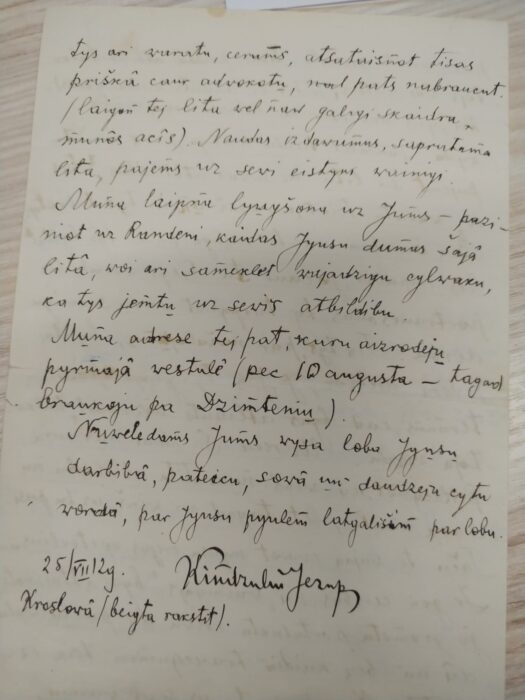 tys ari varātu, cerams, atsataisnōt tisas
priškā caur advokotu, nał pats nubraucūt.
(laigoń tej lita wel naw galeigi skaidra
munōs acīs). Naudas izdawumus, saprutama
lita, pajems uz sevi eistyni wainigi.
Muna laipna lyugšona uz Jums – pazi-
niot uz Randeni, kaidas Jyusu dumas šajā
litā, woi ari sameklet wajadzigu cylwaku,
ka tys jemtu uz sewis atbildibu.
Muna adrese tej pat, kuru aizrodeju
pyrmajā westulē (pec 10 augusta – tagad
braukoju pa Dzimteniu).
Nūweledams Jums wysa loba Jyusu
darbibā, pateicu, sovā un daudzeju cytu
wordā, par Jyusu pyulem latgališim par lobu.
25/VII 12g.
Kindzulis Jezups
Kroslowā (beigta rakstit).